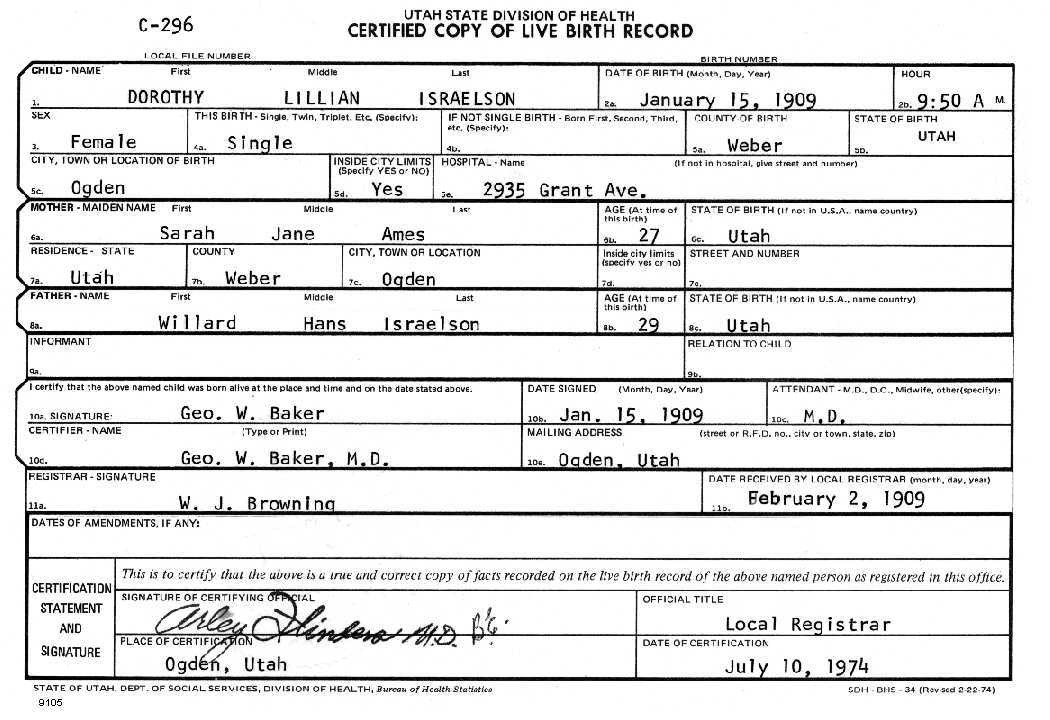 UTAH STATE DIVISION OF HEALTH
C-296
CERTIFIED COPY OF LIVE BIRTH RECORD
LOCAL FILE NUMBER BIRTH NUMBER
CHILD - NAME First Middle Last DATE OF BIRTH (Month, Day, Year) HOUR
1. DOROTHY LILLIAN ISRAELSON 2a. January 15, 1909 2b. 9:50 A M.
SEX THIS BIRTH - Single, Twin, Triplet, Etc. (Specify): IF NOT SINGLE BIRTH - Born First, Second, Third, etc. (Specify): COUNTY OF BIRTH STATE OF BIRTH
3. Female 4a. Single 4b. 5a. Weber 5b. UTAH
CITY, TOWN OR LOCATION OF BIRTH INSIDE CITY LIMITS (Specify YES or NO) HOSPITAL - Name (If not in hospital, give street and number)
5c. Ogden 5d. Yes 5e. 2935 Grant Ave.
MOTHER - MAIDEN NAME First Middle Last AGE (At time of this birth) STATE OF BIRTH (If not in U.S.A., name country)
6a. Sarah Jane Ames 6b. 27 6c. Utah
RESIDENCE - STATE COUNTY CITY, TOWN OR LOCATION Inside city limits (specify yes or no) STREET AND NUMBER
7a. Utah 7b. Weber 7c. Ogden 7d. 7e.
FATHER - NAME First Middle Last AGE (At time of this birth) STATE OF BIRTH (If not in U.S.A., name country)
8a. Willard Hans Israelson 8b. 29 8c. Utah
INFORMANT RELATION TO CHILD
9a. 9b.
I certify that the above named child was born alive at the place and time and on the date stated above. DATE SIGNED (Month, Day, Year) ATTENDANT - M.D., D.O., Midwife, other(specify):
10a. SIGNATURE: Geo. W. Baker 10b. Jan. 15, 1909 10c. M.D.
CERTIFIER - NAME (Type or Print) MAILING ADDRESS (street or R.F.D. no., city or town, state, zip)
10d. Geo. W. Baker, M.D. 10e. Ogden, Utah
REGISTRAR - SIGNATURE DATE RECEIVED BY LOCAL REGISTRAR (month, day, year)
11a. W. J. Browning 11b. February 2, 1909
DATES OF AMENDMENTS, IF ANY:
CERTIFICATION STATEMENT AND SIGNATURE
This is to certify that the above is a true and correct copy of facts recorded on the live birth record of the above named person as registered in this office.
SIGNATURE OF CERTIFYING OFFICIAL OFFICIAL TITLE
Arley Flinders M.D. Local Registrar
PLACE OF CERTIFICATION DATE OF CERTIFICATION
Ogden, Utah July 10, 1974
STATE OF UTAH, DEPT. OF SOCIAL SERVICES, DIVISION OF HEALTH, Bureau of Health Statistics SDH - BHS - 34 (Revised 2-22-74)
9105